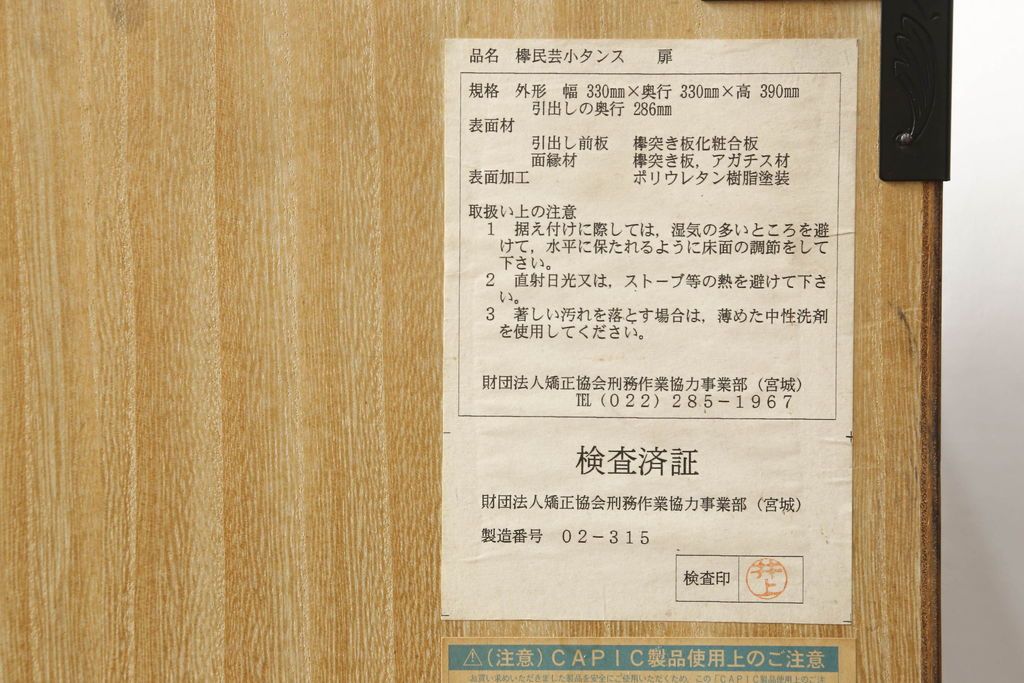 品名　欅民芸小タンス　　扉
規格　外形　幅 330mm×奥行 330mm×高 390mm
引出しの奥行 286mm
表面材
引出し前板　欅突き板化粧合板
面縁材　欅突き板，アガチス材
表面加工　ポリウレタン樹脂塗装
取扱い上の注意
１　据え付けに際しては，湿気の多いところを避
けて，水平に保たれるように床面の調節をして
下さい。
２　直射日光又は，ストーブ等の熱を避けて下さ
い。
３　著しい汚れを落とす場合は，薄めた中性洗剤
を使用してください。
財団法人矯正協会刑務作業協力事業部（宮城）
℡（０２２）２８５－１９６７
検査済証
財団法人矯正協会刑務作業協力事業部（宮城）
製造番号　０２－３１５
検査印
井上
⚠（注意）ＣＡＰＩＣ製品使用上のご注意
お買い求めいただきました製品を安全にご使用いただくため，この「ＣＡＰＩＣ製品使用上のご注